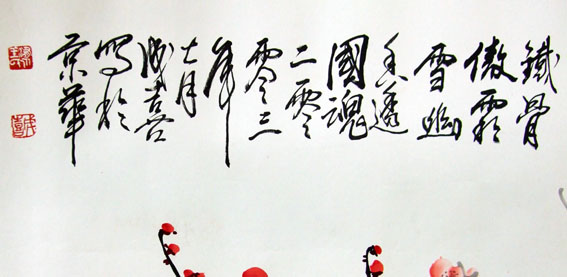 鐵骨
傲霜
雪幽
香透
國魂
二零
零三
年
七月
成喜
寫於
京華